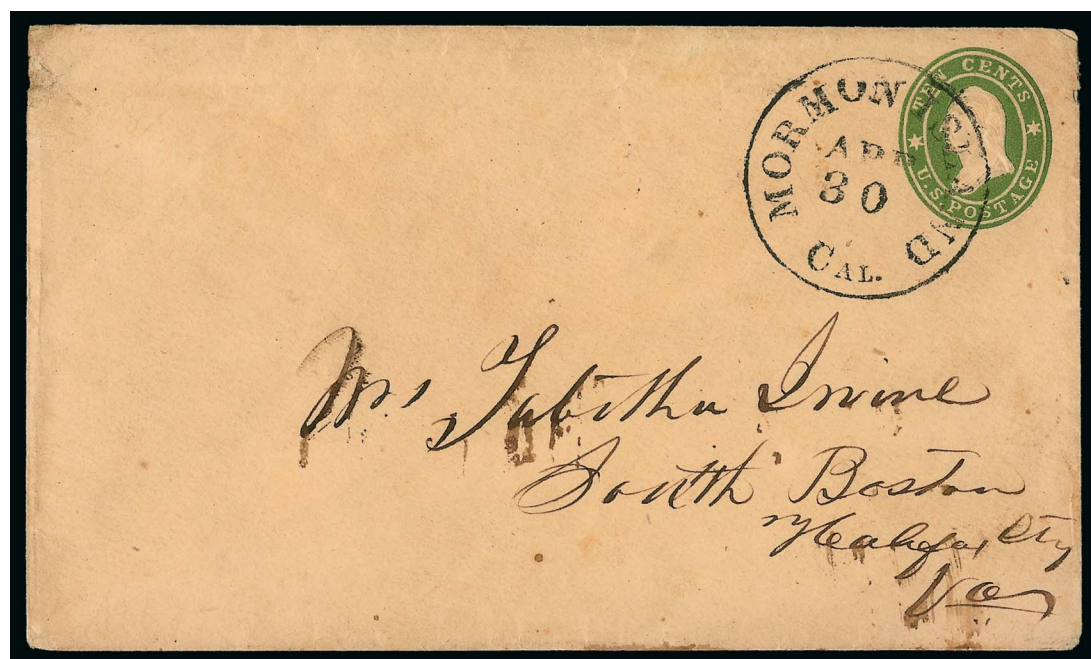 MORMON ISLAND
APR
30
CAL.
TEN CENTS
U.S. POSTAGE
Mrs Tabitha Irvine
South Boston
Halifax Cty
Va